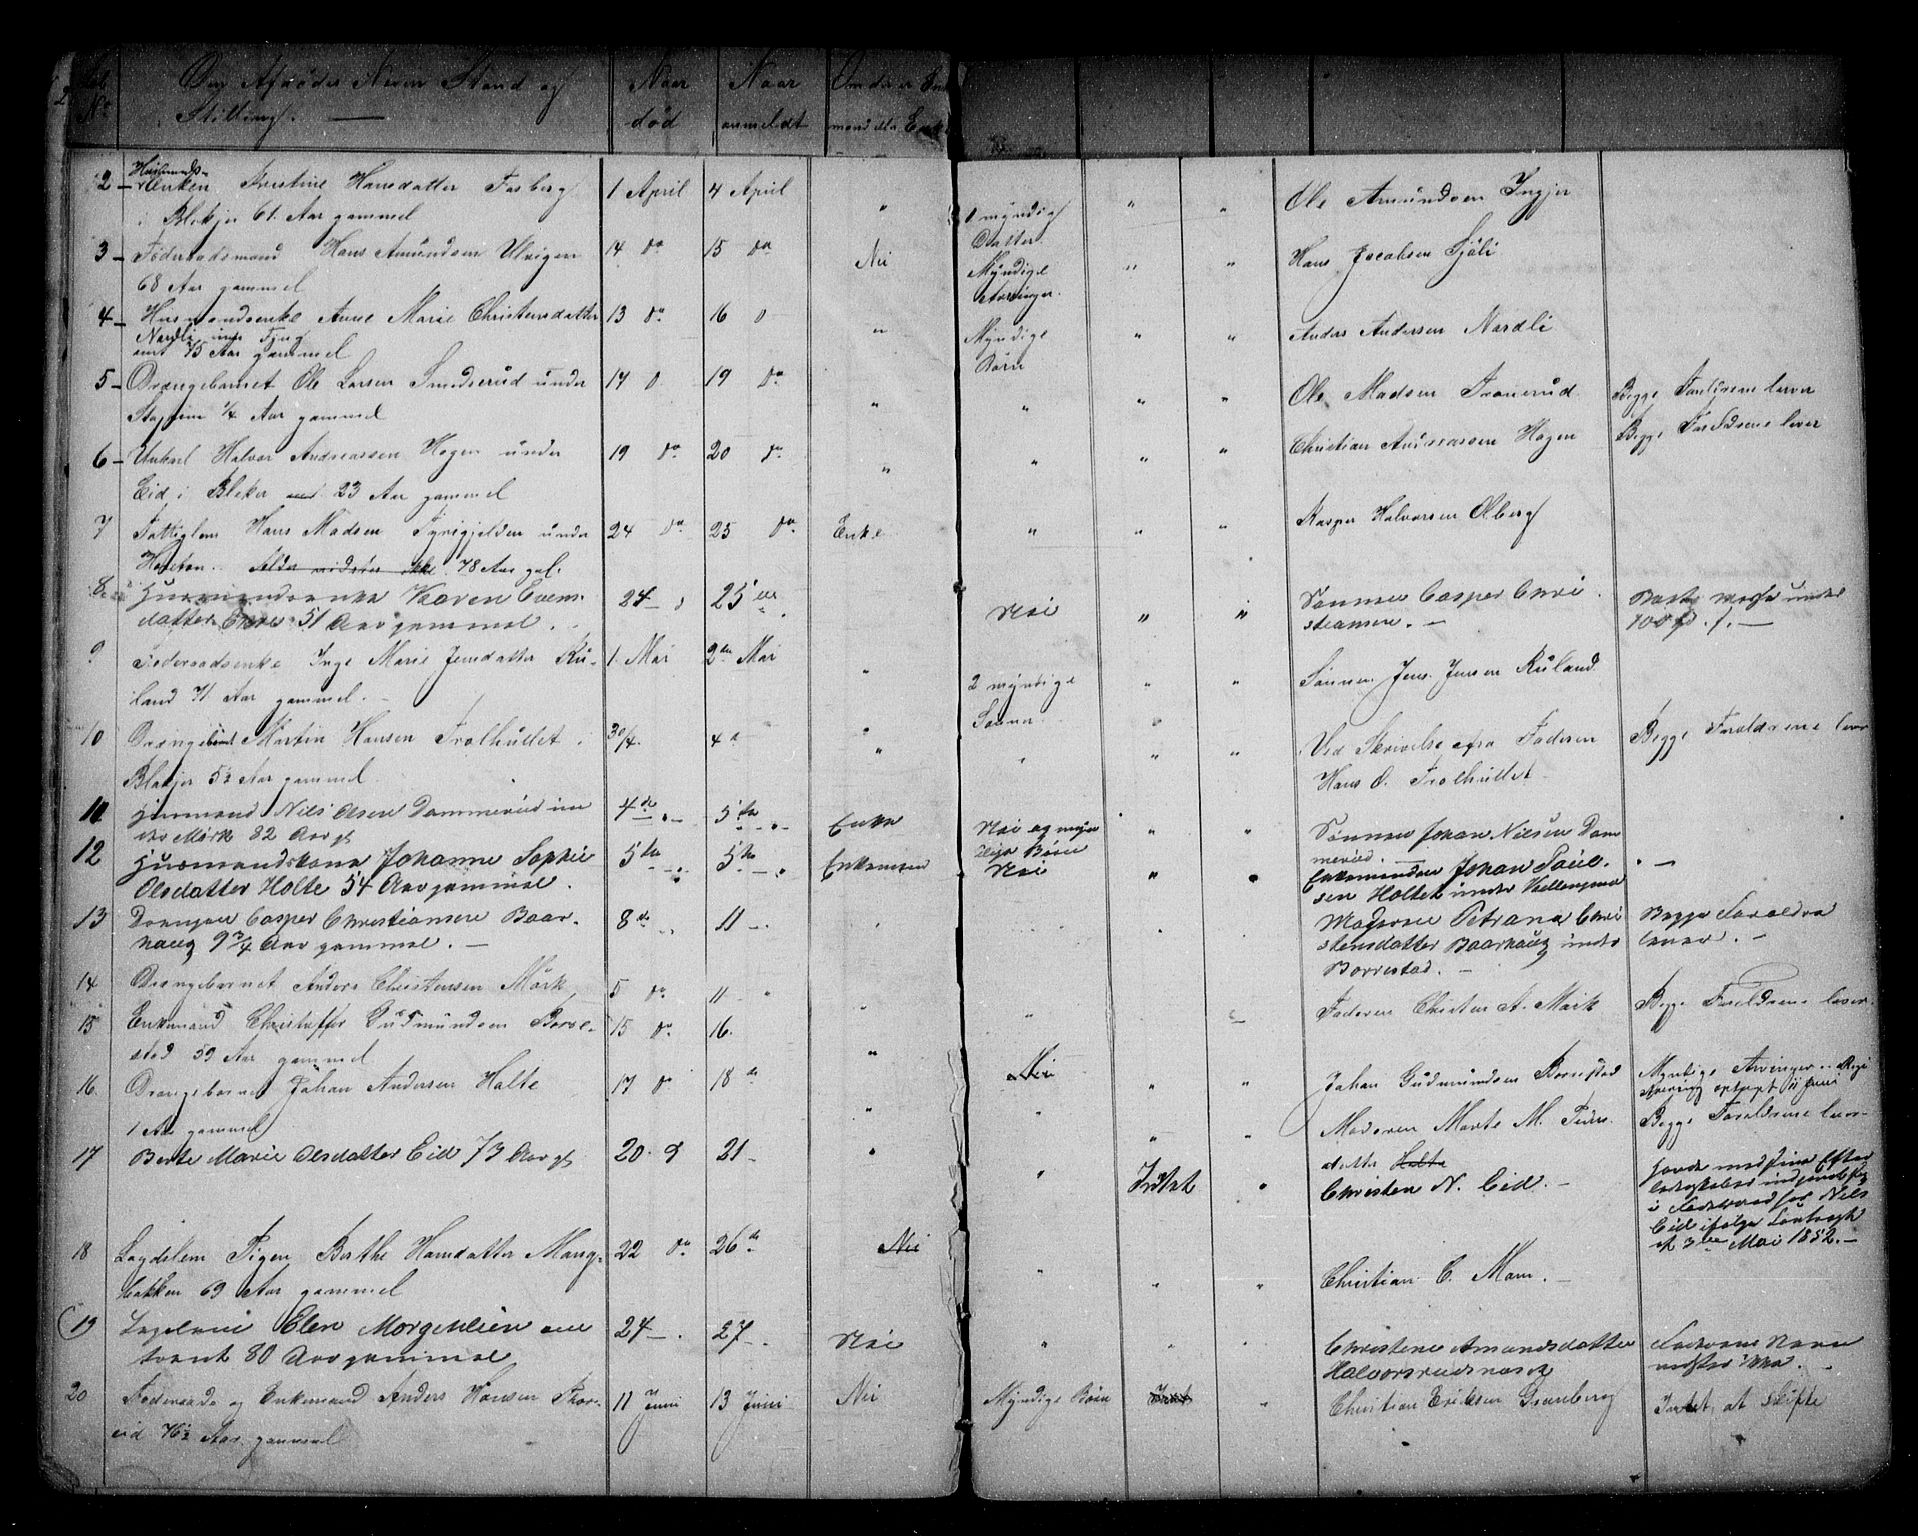 No
Den Afdødes Navn Stand og
Stilling.
Naar
død
Naar
anmeldt
Om der er
mand eller Enke
2 - Huusmands-
Enken Kristine Hansdatter Fosberg
i Blekjer 61 Aar gammel
1 April
4 April
"
1 myndig
Datter
"
"
Ole Amundsen Ingjer
3 - Føderaadsmand Hans Amundsen Ulvigen
68 Aar gammel
14 do
15 do
Nei
Myndige
Arvinger.
"
"
Hans Jacobsen Sjøli
4 - Husmandsenke Anne Marie Christensdatter
Nordli
75 Aar gammel
13 do
16 do
"
Myndige
Børn
"
"
Anders Andersen Nordli
5 - Drengebarnet Ole Larsen Smedserud under
Stappen 1/4 Aar gammel
17 do
19 do
"
"
"
"
Ole Madsen Tronerud
Begge Forældrene lever
6 - Unkarl Halvor Andreassen Hogen under
Eid i Bleker 23 Aar gammel
19 do
20 do
"
"
"
"
Christian Andreassen Hagen
Begge Forældrene lever
7 Fattiglem Hans Madsen Tyrigjelden under
Holeton. Alder vidstes ikke 78 Aar gal.
24 do
25 do
Enke
"
"
"
Kasper Halvorsen Olberg
8 Huusmandsenke Karen Evens-
datter 51 Aar gammel.
24
25
Nei
"
"
Sønnen Casper Chri
stiansen. -
Boets Masse under
100 Spd. -
9 Føderaadsenke Inge Marie Jensdatter Ru-
land 71 Aar gammel. -
1. Mai
2den Mai
"
2 myndige
Sønner
"
"
Sønnen Jens Jensen Ruland
10 Drengebarnet Martin Hansen Trolhullet i
Blekjer 5½ Aar gammel
30/4.
4 d
"
"
"
"
Ved Skrivelse fra Faderen
Hans O. Trolhullet
Begge Forældrene lever
11 Huusmand Nils Olsen Dammerud un
der Mork 82 Aar gl
4de
5te
Enke
Nei og myn
dige Børn
"
"
Sønnen Johan Nilsen Dam
merud. -
12 Huusmandskone Johanne Sophie
Olsdatter Holte 54 Aar gammel.
5te
5te
Enkemand
Nei
"
"
Enkemanden Johan Paul-
sen Holtet under Kullerud
13 Drengen Casper Christiansen Baar-
haug 9 3/4 Aar gammel. -
8de
11
Moderen Petrana Chri
stensdatter Baarhaug under
Borrestad. -
Begge Forældre
lever. -
14 Drengebarnet Anders Christensen Mörk
5 do
11 "
"
Faderen Christen A. Mörk
Begge Forældrene lever.
15 Enkemand Christoffer Gudmundsen Borre-
stad 59 Aar gammel
15 do
16.
"
Nei
"
"
Johan Gudmundsen Borrestad
Myndige Arvinger
optaget 11 Juni
16. Drengebarnet Johan Andersen Holte
1 Aar gammel
17 do
18 d
"
"
"
"
Moderen Marte M. Peders
datter Holte
Begge Forældrene lever
17 Berte Marie Olsdatter Eid 73 Aar gl
20. d
21
"
"
Intet
"
Christen N. Eid. -
Havde med sine Efter
i Føderaad hos Nils
Eid ifølge Contract
af 3die Mai 1852. -
18 Lægdslem Pigen Berthe Hansdatter Mang-
bakken 69 Aar gammel
22 do
26 d
Nei
"
"
"
Christian C. Mom. -
19 Elen Morgenlien om
trent 80 Aar gammel
24
27
Nei
"
"
"
Christene Amundsdatter
Halvorsrud
Faderens Navn
vidstes ikke. -
20 Føderaads og Enkemand Anders Hansen Thor-
eid 76½ Aar gammel
11 Juni
13 Juni
Nei
Myndige Børn
Intet
"
Christian Eriksen Granberg
Intet at skifte